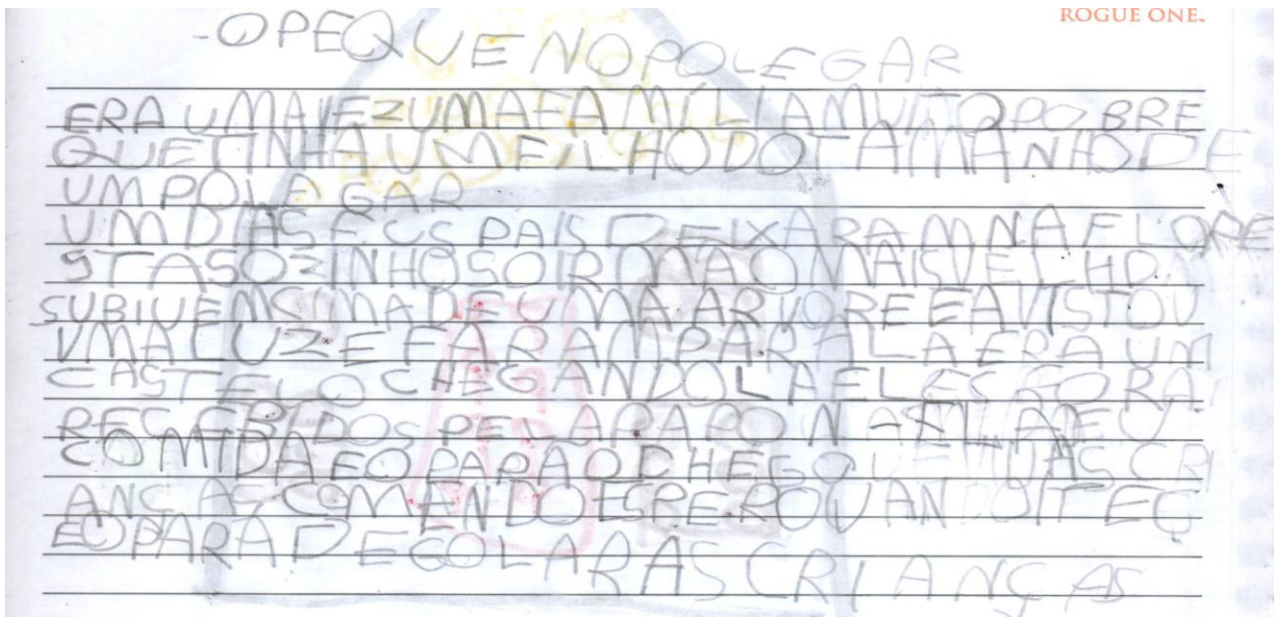 ROGUE ONE.
-O PEQUENO POLEGAR
ERA UMA VEZ UMA FAMÍLIA MUITO POBRE
QUE TINHA UM FILHO DO TAMANHO DE
UM POLEGAR
UM DIA OS PAIS DEIXARAM NA FLORE
STA SOZINHOS O IRMÃO MAIS VELHO
SUBIU EM SIMA DE UMA ARVORE E AVISTOU
UMA LUZ E FARAM PARA LA ERA UM
CASTELO CHEGANDO LA ELES FORA
RECEBIDOS PELA
COMIDA E O PAPÃO CHEGO E VIU AS CRI
ANÇAS COMENDO ESPEROU ANOITEC
EO PARA DEGOLAR AS CRIANÇAS